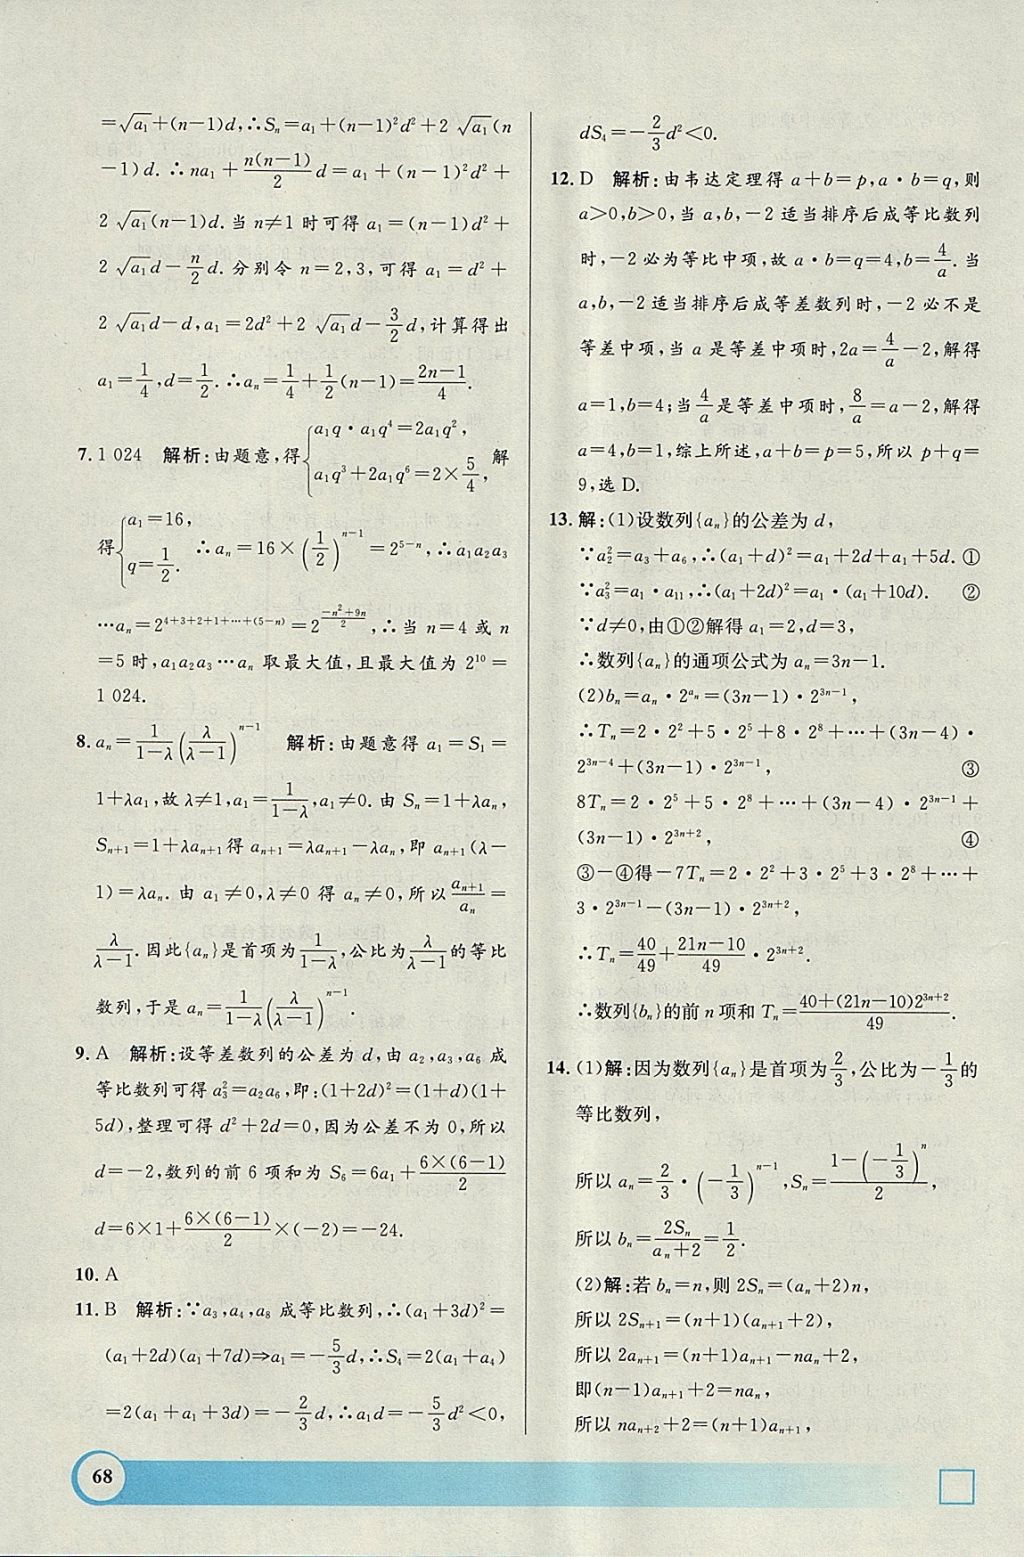 =√a₁+(n−1)d,∴Sₙ=a₁+(n−1)²d²+2 √a₁(n
−1)d.∴na₁+n(n−1)/2 d=a₁+(n−1)²d²+
2 √a₁(n−1)d.当 n≠1 时可得 a₁=(n−1)d²+
2 √a₁d−n/2 d.分别令 n=2,3,可得 a₁=d²+
2 √a₁d−d,a₁=2d²+2 √a₁d−3/2 d,计算得出
a₁=1/4,d=1/2.∴aₙ=1/4+1/2(n−1)=(2n−1)/4.
7.1 024 解析:由题意,得{a₁q·a₁q⁴=2a₁q², a₁q³+2a₁q⁶=2×5/4, 解
得{a₁=16, q=1/2. ∴aₙ=16×(1/2)^(n−1)=2^(5−n),∴a₁a₂a₃
⋯aₙ=2^(4+3+2+1+⋯+(5−n))=2^((−n²+9n)/2),∴当 n=4 或 n
=5 时,a₁a₂a₃⋯aₙ 取最大值,且最大值为 2¹⁰=
1 024.
8.aₙ=1/(1−λ)(λ/(λ−1))^(n−1) 解析:由题意得 a₁=S₁=
1+λa₁,故 λ≠1,a₁=1/(1−λ),a₁≠0.由 Sₙ=1+λaₙ,
Sₙ₊₁=1+λaₙ₊₁得 aₙ₊₁=λaₙ₊₁−λaₙ,即 aₙ₊₁(λ−
1)=λaₙ.由 a₁≠0,λ≠0 得 aₙ≠0,所以aₙ₊₁/aₙ=
λ/(λ−1).因此{aₙ}是首项为1/(1−λ),公比为λ/(λ−1)的等比
数列,于是 aₙ=1/(1−λ)(λ/(λ−1))^(n−1).
9.A 解析:设等差数列的公差为 d,由 a₂,a₃,a₆ 成
等比数列可得 a₃²=a₂a₆,即:(1+2d)²=(1+d)(1+
5d),整理可得 d²+2d=0,因为公差不为 0,所以
d=−2,数列的前 6 项和为 S₆=6a₁+6×(6−1)/2
d=6×1+6×(6−1)/2×(−2)=−24.
10.A
11.B 解析:∵a₃,a₄,a₈ 成等比数列,∴(a₁+3d)²=
(a₁+2d)(a₁+7d)⇒a₁=−5/3 d,∴S₄=2(a₁+a₄)
=2(a₁+a₁+3d)=−2/3 d,∴a₁d=−5/3 d²<0,
dS₄=−2/3 d²<0.
12.D 解析:由韦达定理得 a+b=p,a·b=q,则
a>0,b>0,当 a,b,−2 适当排序后成等比数列
时,−2 必为等比中项,故 a·b=q=4,b=4/a.当
a,b,−2 适当排序后成等差数列时,−2 必不是
等差中项,当 a 是等差中项时,2a=4/a−2,解得
a=1,b=4;当4/a是等差中项时,8/a=a−2,解得
a=4,b=1,综上所述,a+b=p=5,所以 p+q=
9,选 D.
13.解:(1)设数列{aₙ}的公差为 d,
∵a₂²=a₃+a₆,∴(a₁+d)²=a₁+2d+a₁+5d.①
∵a₃²=a₁·a₁₁,∴(a₁+2d)²=a₁·(a₁+10d). ②
∵d≠0,由①②解得 a₁=2,d=3,
∴数列{aₙ}的通项公式为 aₙ=3n−1.
(2)bₙ=aₙ·2^(aₙ)=(3n−1)·2^(3n−1),
∴Tₙ=2·2²+5·2⁵+8·2⁸+⋯+(3n−4)·
2^(3n−4)+(3n−1)·2^(3n−1), ③
8Tₙ=2·2⁵+5·2⁸+⋯+(3n−4)·2^(3n−1)+
(3n−1)·2^(3n+2), ④
③−④得−7Tₙ=2·2²+3·2⁵+3·2⁸+⋯+
3·2^(3n−1)−(3n−1)·2^(3n+2),
∴Tₙ=40/49+(21n−10)/49·2^(3n+2).
∴数列{bₙ}的前 n 项和 Tₙ=(40+(21n−10)2^(3n+2))/49.
14.(1)解:因为数列{aₙ}是首项为2/3,公比为−1/3的
等比数列,
所以 aₙ=2/3·(−1/3)^(n−1),Sₙ=(1−(−1/3)^n)/2,
所以 bₙ=2Sₙ/(aₙ+2)=1/2.
(2)解:若 bₙ=n,则 2Sₙ=(aₙ+2)n,
所以 2Sₙ₊₁=(n+1)(aₙ₊₁+2),
所以 2aₙ₊₁=(n+1)aₙ₊₁−naₙ+2,
即(n−1)aₙ₊₁+2=naₙ,
所以 naₙ₊₂+2=(n+1)aₙ₊₁,
68